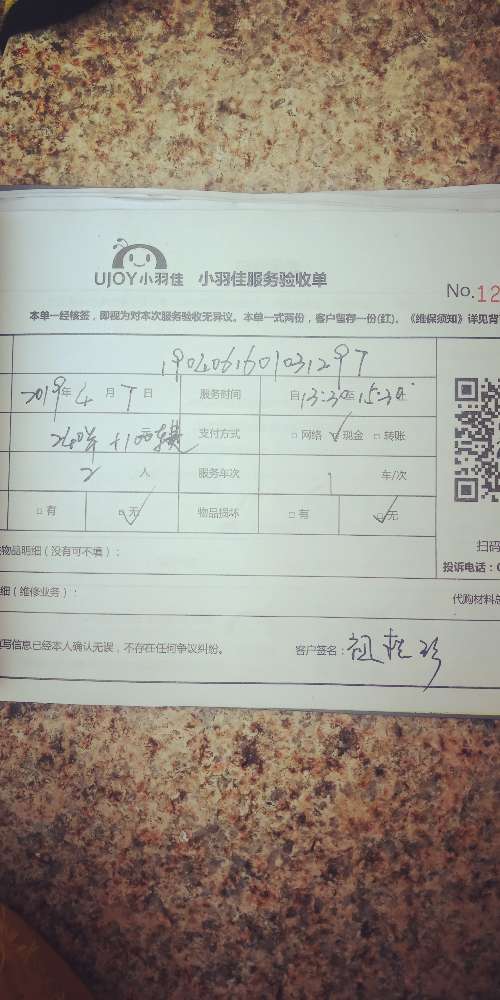 UJOY小羽佳 小羽佳服务验收单
No.12
本单一经核签，即视为对本次服务验收无异议。本单一式两份，客户留存一份(红)。《维保须知》详见背
1904061601031297
2019年4月7日 服务时间 自13:30至15:30止
支付方式 □网络 ☑现金 □转账
2人 服务车次 1 车/次
□有 ☑无 物品损坏 □有 ☑无
物品明细（没有可不填）：
扫码
投诉电话：0
细（维修业务）： 代购材料总
写信息已经本人确认无误，不存在任何争议纠纷。 客户签名：